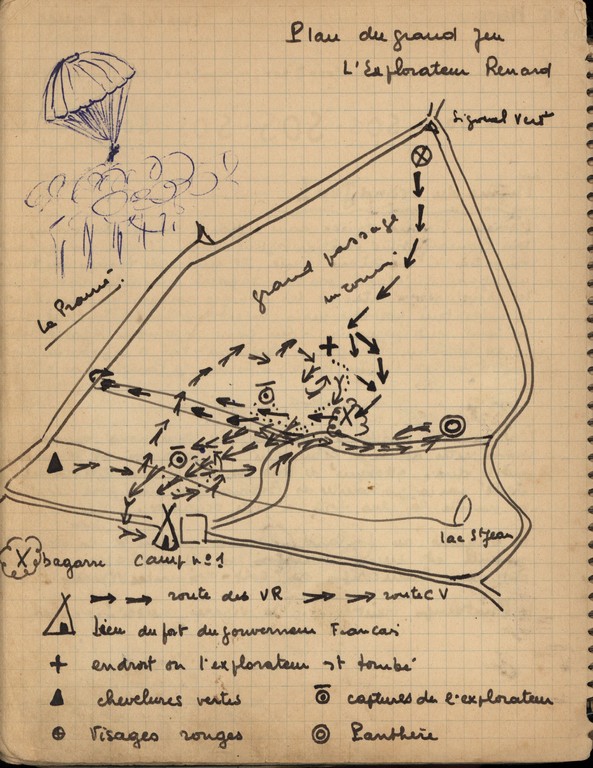 Plan du grand jeu
L'Explorateur Renard
Signal Vert
grand passage
inconnu
La Prairie
lac St Jean
bagarre
camp n° 1
route des VR
route CV
Lieu du fort du gouverneur Francais
endroit ou l'explorateur st tombé
chevelures vertes
captures de l'explorateur
Visages rouges
Panthère